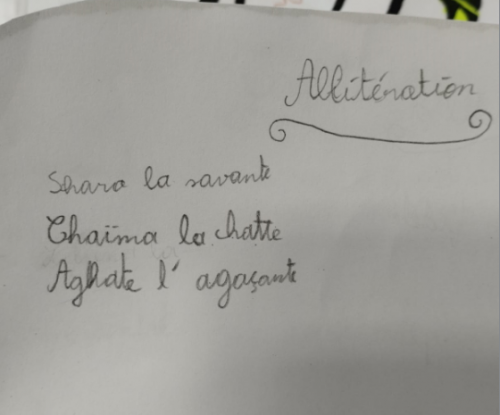 Allitération
Sharo la savante
Chaïma la chatte
Aghate l'agaçante